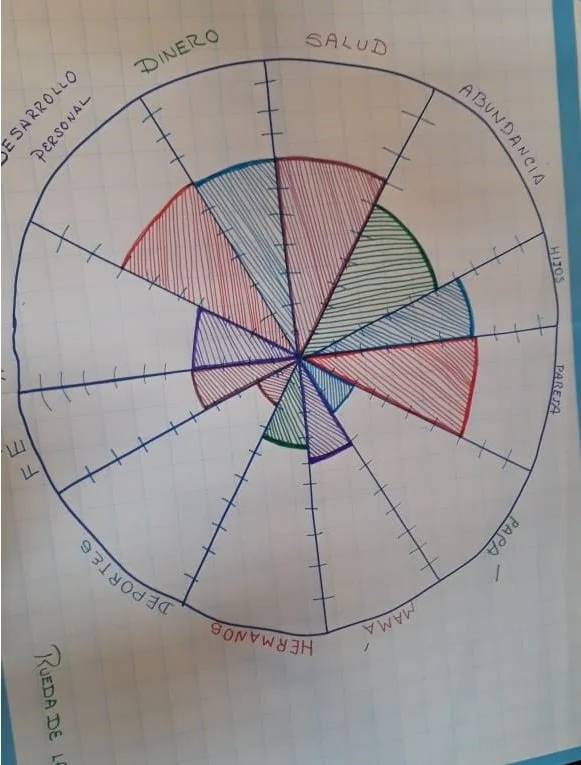 DINERO
SALUD
ABUNDANCIA
HIJOS
PAREJA
PAPÁ
MAMÁ
HERMANOS
DEPORTES
FE
DESARROLLO
PERSONAL
RUEDA DE LA